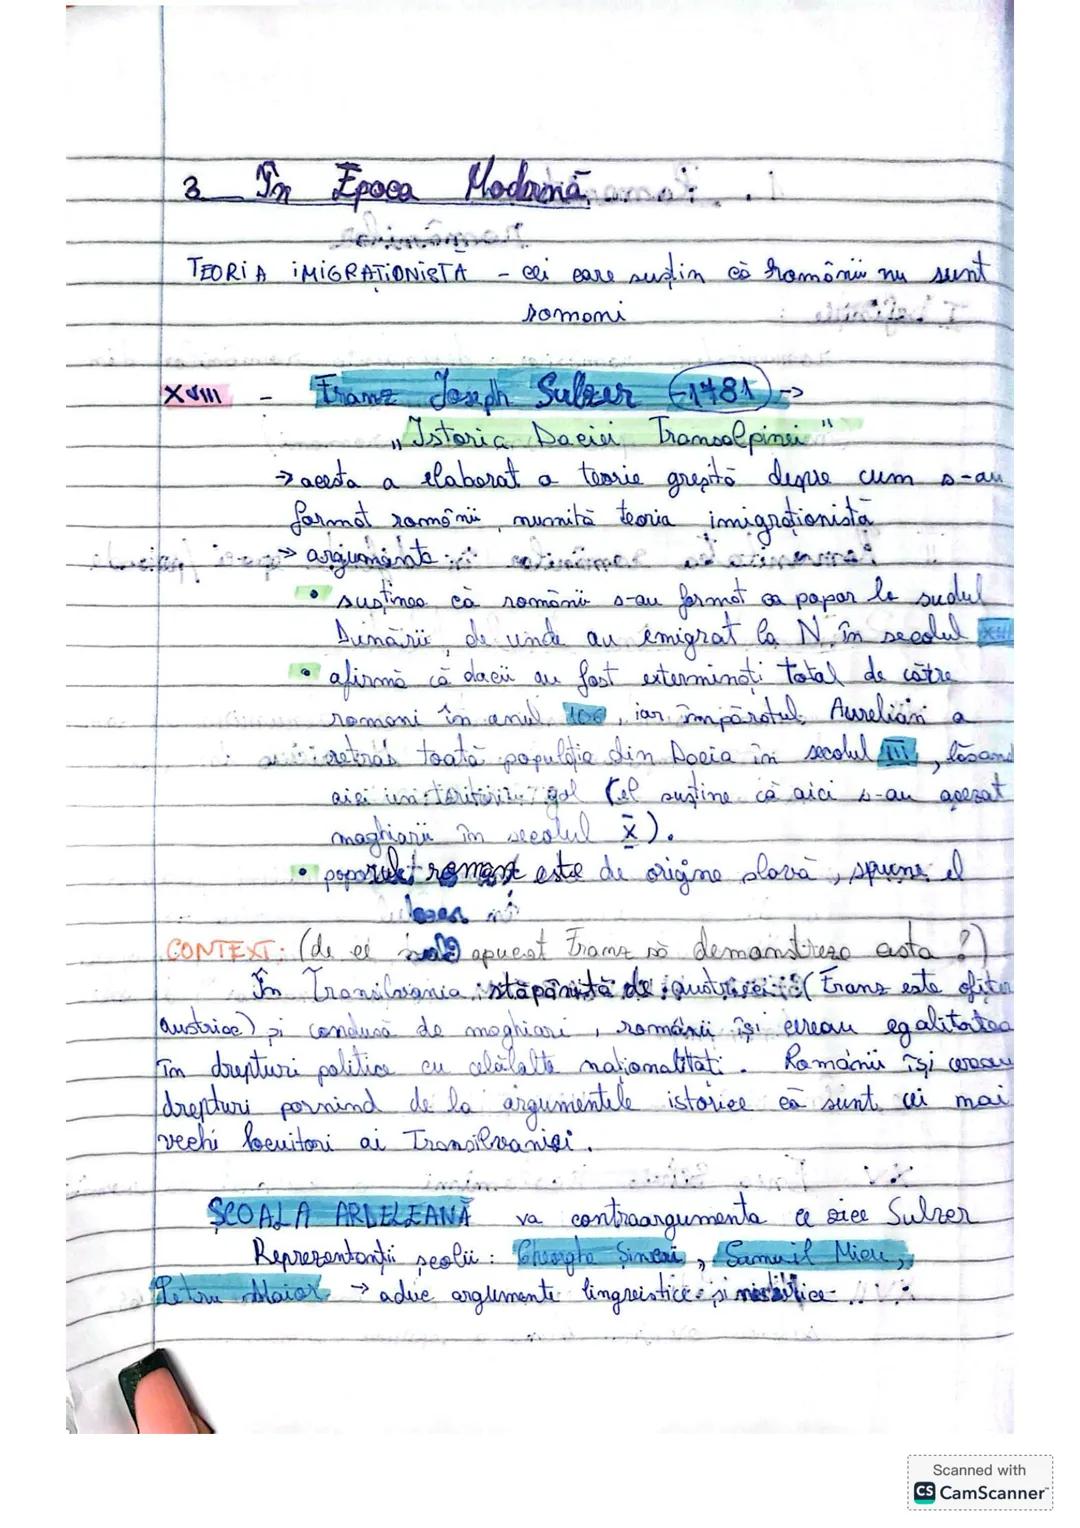 3 În Epoca Modernă
TEORIA IMIGRAȚIONISTĂ - cei care susțin că românii nu sunt
romani
XVIII - Franz Joseph Sulzer (-1781) →
„Istoria Daciei Transalpinei"
→ acesta a elaborat o teorie greșită despre cum s-au
format românii, numită teoria imigraționistă
→ argumente:
• susținea că românii s-au format ca popor la sudul
Dunării, de unde au emigrat la N în secolul XIII
• afirmă că dacii au fost exterminați total de către
romani în anul 106, iar împăratul Aurelian a
retras toată populația din Dacia în secolul III, lăsand
aici un teritoriu gol (el susține că aici s-au așezat
maghiarii în secolul X).
• poporul roman este de origine slavă, spune el
CONTEXT: (de ce apucat Franz să demonstreze asta?)
În Transilvania stăpânită de austrieci (Franz este ofițer
austriac) și condusă de maghiari, românii își cereau egalitatea
în drepturi politice cu celălalte naționalități. Românii își cereau
drepturi pornind de la argumentele istorice că sunt cei mai
vechi locuitori ai Transilvaniei.
ȘCOALA ARDELEANĂ va contraargumenta ce zice Sulzer
Reprezentanții școlii: Gheorghe Șincai, Samuil Micu,
Petru Maior → aduc argumente lingvistice și
Scanned with
CS CamScanner